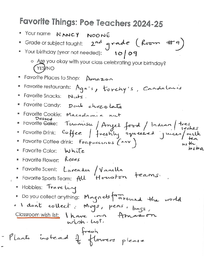 Favorite Things: Poe Teachers 2024-25
• Your name: NANCY NOONE
• Grade or subject taught: 2nd grade (Room #9)
• Your birthday (year not needed): 10/09
o Are you okay with your class celebrating your birthday?
YES/NO
• Favorite Places to Shop: Amazon
• Favorite restaurants: Aga's, Torchy's, Candelaris
• Favorite Snacks: Nuts
• Favorite Candy: Dark chocolate
• Favorite Cookie: Macadamia nut
Dessert
• Favorite Cake: Tiramisu / Angel food / Indian / tres leches
• Favorite Drink: Coffee / freshly squeezed juices / tea with
• Favorite Coffee drink:
• Favorite Color: White
• Favorite Flower: Roses
• Favorite Scent: Lavender / Vanilla
• Favorite Sports Team: All Houston teams.
• Hobbies: Traveling
• Do you collect anything: Magnets from around the world
- I don't collect: Mugs, pens, bags,
Classroom wish-list: I have an Amazon
wish list.
- Plants instead of fresh flowers please